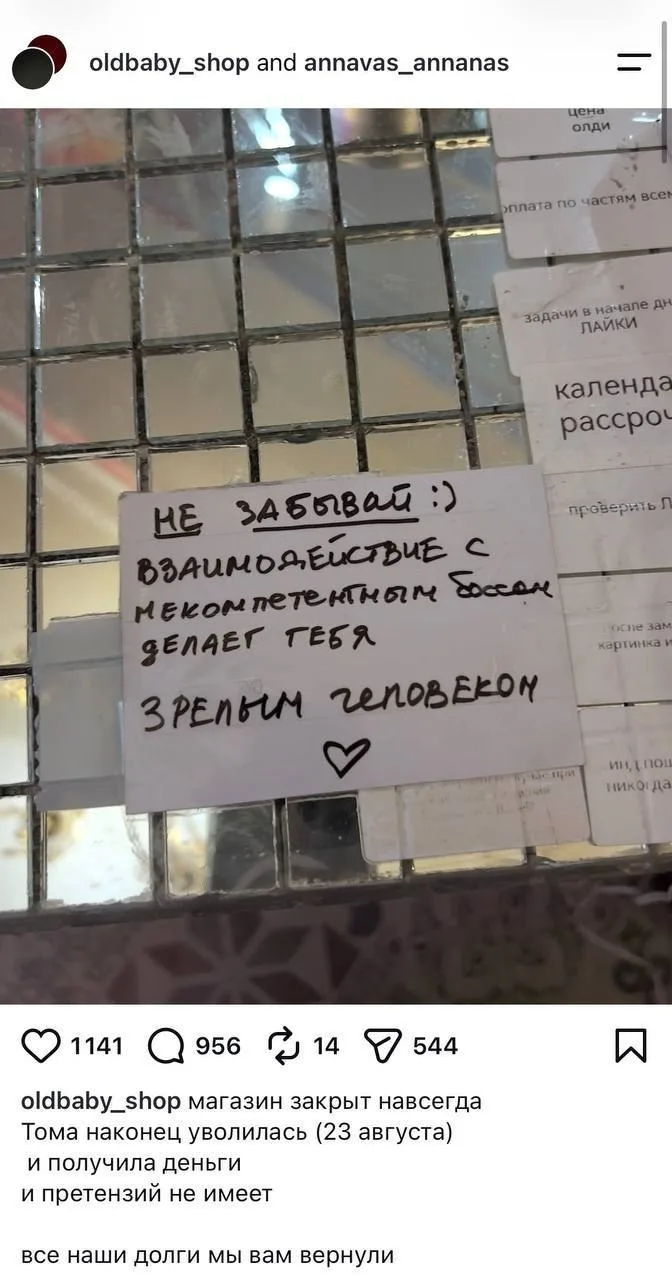 oldbaby_shop and annavas_annanas
цена
олди
оплата по частям всем
задачи в начале дн
ЛАЙКИ
календа
рассроч
НЕ ЗАБЫВАЙ :)
ВЗАИМОДЕЙСТВИЕ С
НЕКОМПЕТЕНТНЫМ боссом
ДЕЛАЕТ ТЕБЯ
ЗРЕЛЫМ ЧЕЛОВЕКОМ
♡
проверить Л
после зам
картинка и
никогда
1141 956 14 544
oldbaby_shop магазин закрыт навсегда
Тома наконец уволилась (23 августа)
и получила деньги
и претензий не имеет
все наши долги мы вам вернули